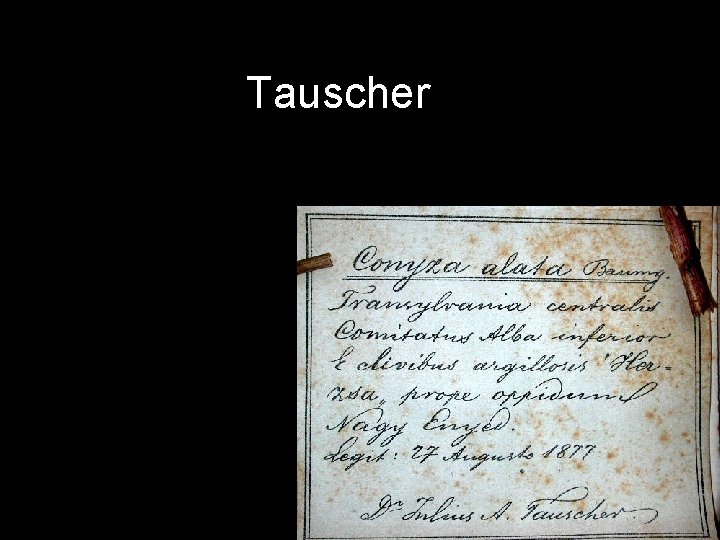 Tauscher
Conyza alata Baumg.
Transylvania centralis
Comitatus Alba inferior
E clivibus argillosis "Her-
zsa" prope oppidum
Nagy Enyed.
Legit: 27 Augusto 1877
Dr Julius A. Tauscher.